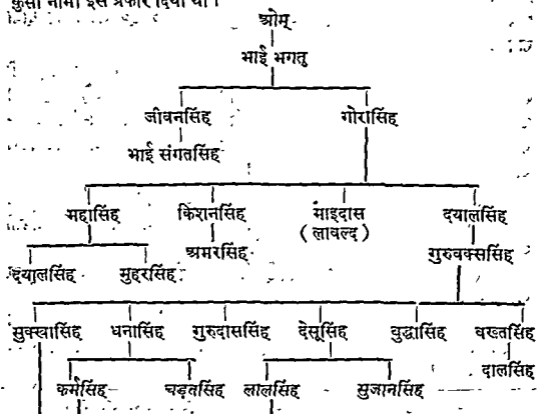 कुर्सी नामा इस प्रकार दिया था ।
ओम्
भाई भगतु
जीवनसिंह गोरासिंह
भाई संगतसिंह
महासिंह किशनसिंह माइदास दयालसिंह
(लावल्द)
दयालसिंह मुहरसिंह अमरसिंह गुरुवक्ससिंह
सुक्खासिंह धनासिंह गुरुदाससिंह देसूसिंह वुद्धासिंह वख्तसिंह
दालसिंह
कर्मसिंह चढ़तसिंह लालसिंह सुजानसिंह